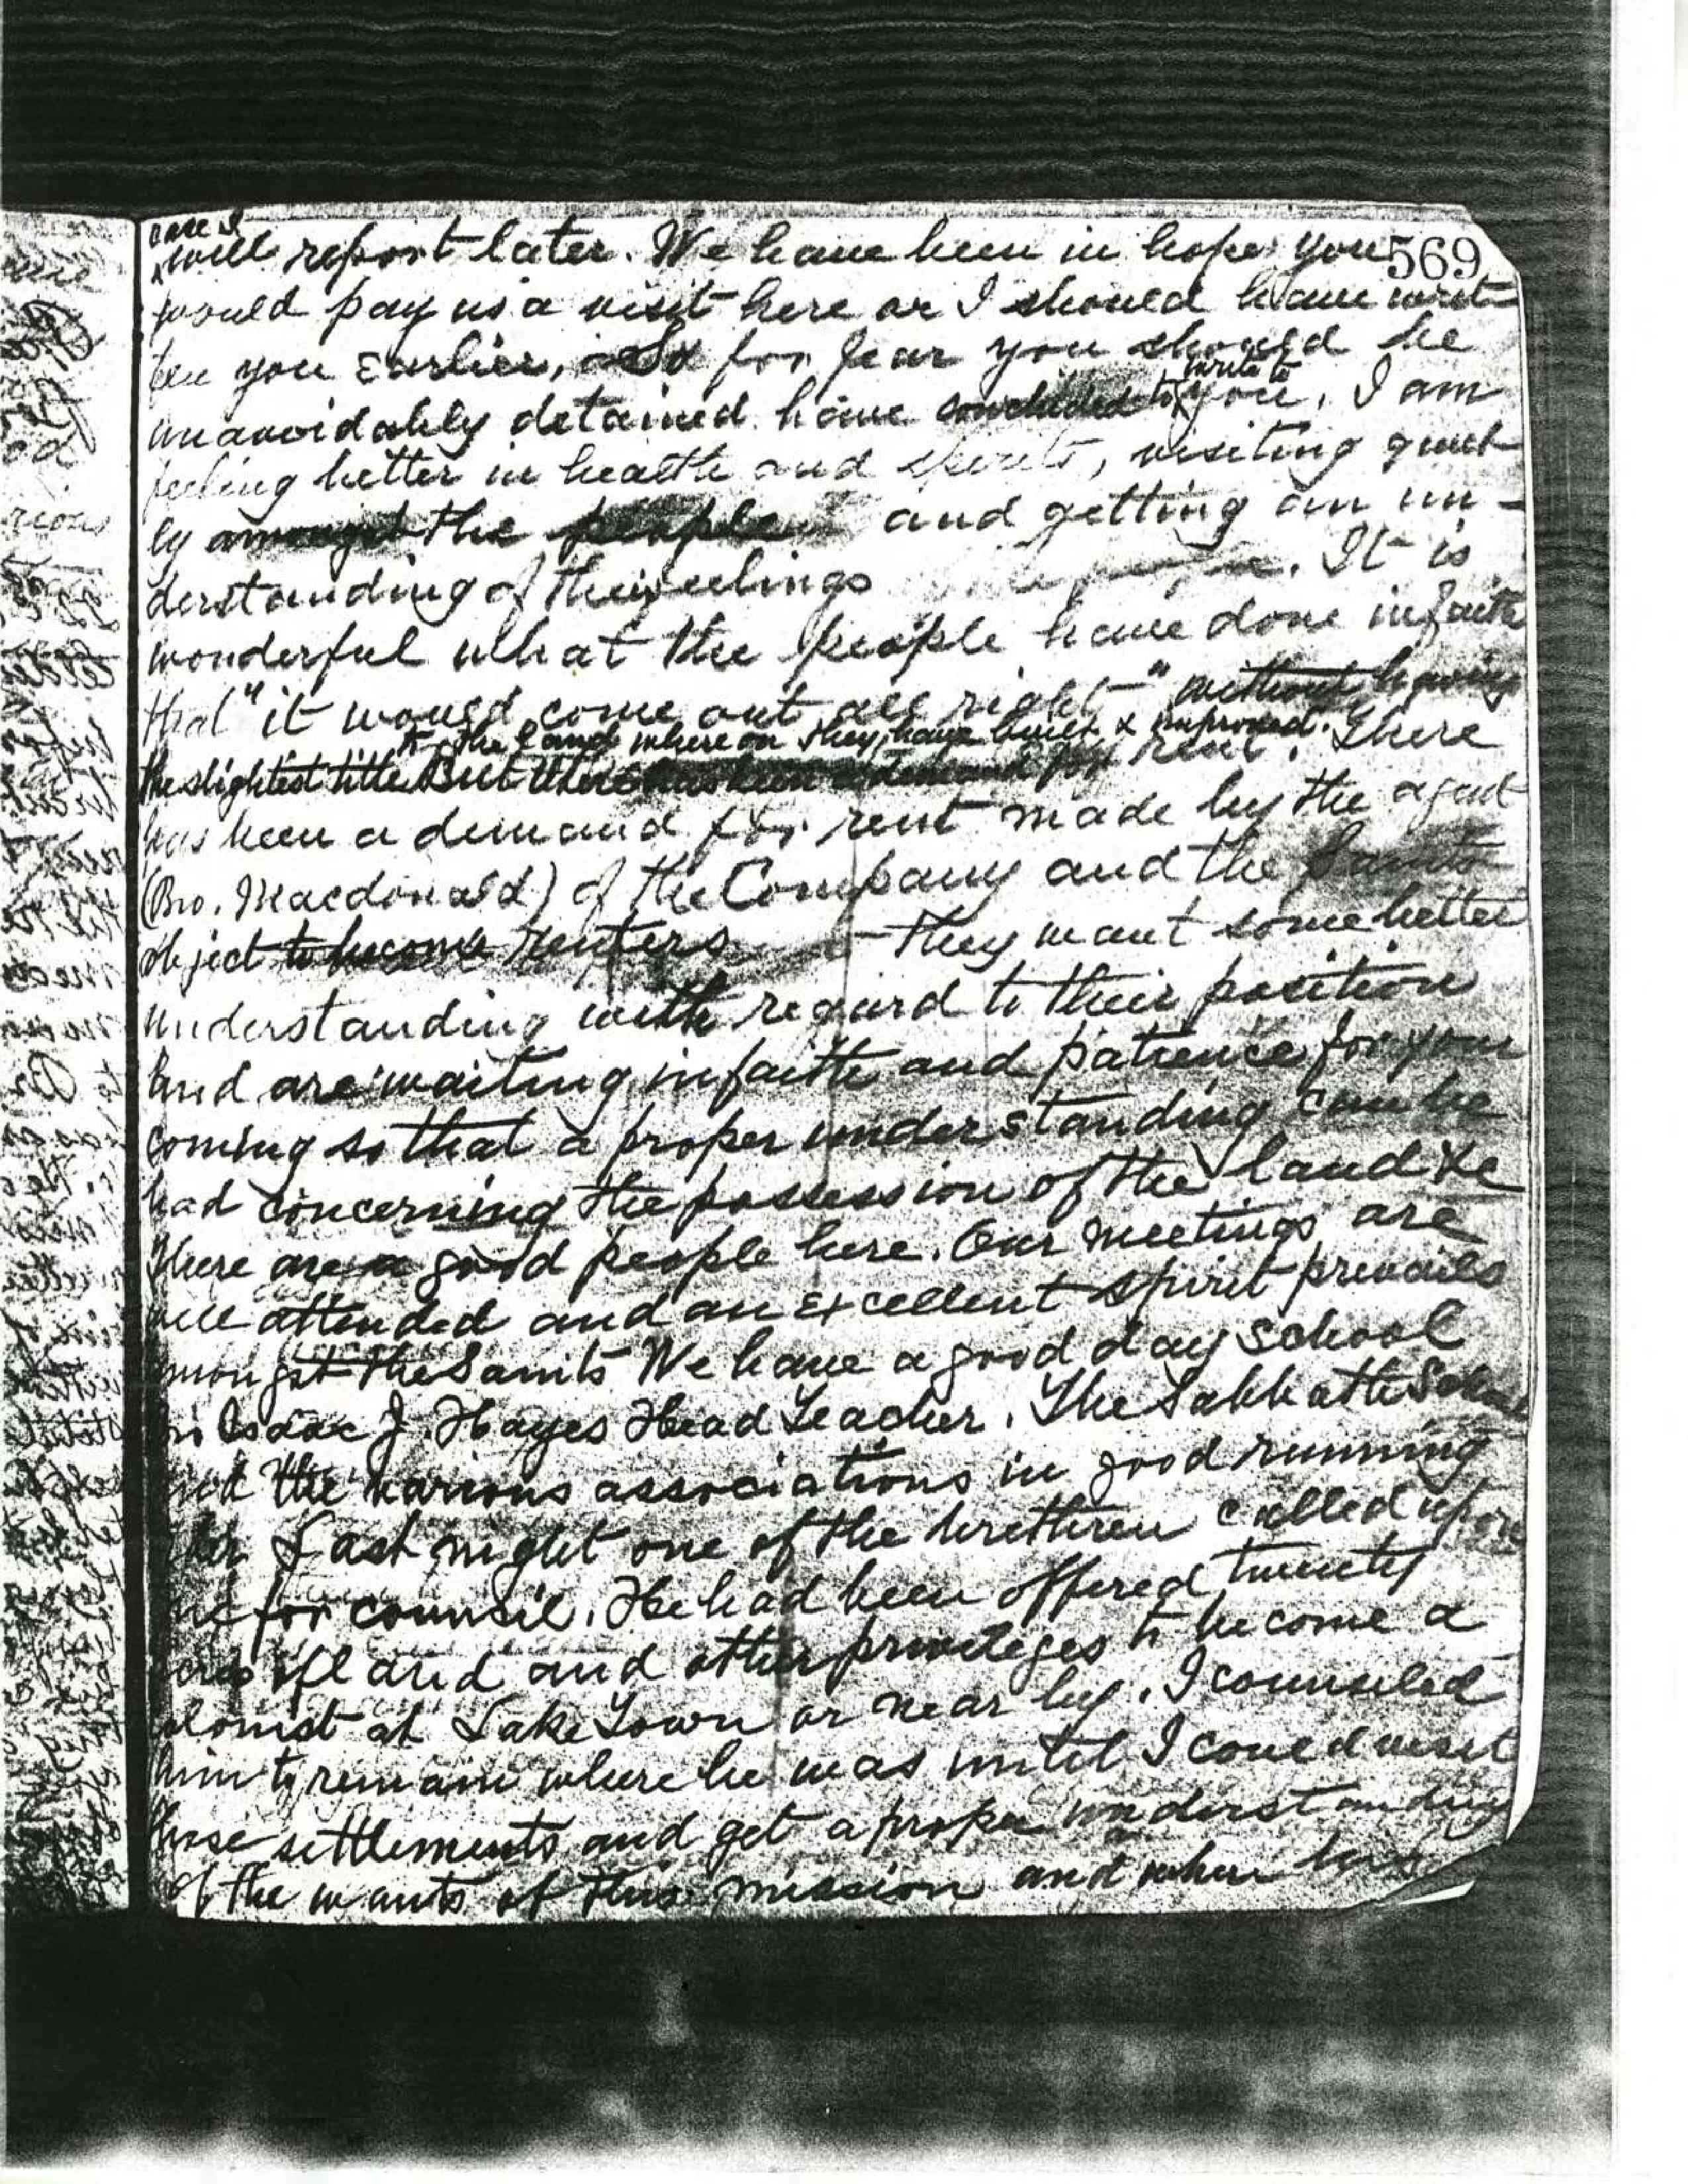 case I
will report later. We have been in hopes you 569
would pay us a visit here or I should have writ-
ten you Earlier, for fear you should be
write to
unavoidably detained have concluded to you. I am
feeling better in health and spirits, visiting quiet-
ly amongst the people and getting an un-
derstanding of their feelings . It is
wonderful what the people have done in faith
that "it would come out all right" without having
to the land where on they have built & improved.
the slightest title But there has been a demand for rent. There
has been a demand for rent made by the agent
(Bro. Macdonald) of the Company and the Saints
object to become renters - they want some better
understanding with regard to their position
and are waiting in faith and patience for your
coming so that a proper understanding can be
had concerning the possession of the land &c
There are a good people here. Our meetings are
well attended and an Excellent spirit prevails
amongst the Saints We have a good day school
Isaac J. Hayes Head Teacher. The Sabbath School
and the various associations in good running
order Last night one of the brethren called upon
me for council. He had been offered twenty
acres of land and other privileges to become a
colonist at Lake Town or near by. I counseled
him to remain where he was until I could visit
those settlements and get a proper understanding
of the wants of this mission and when